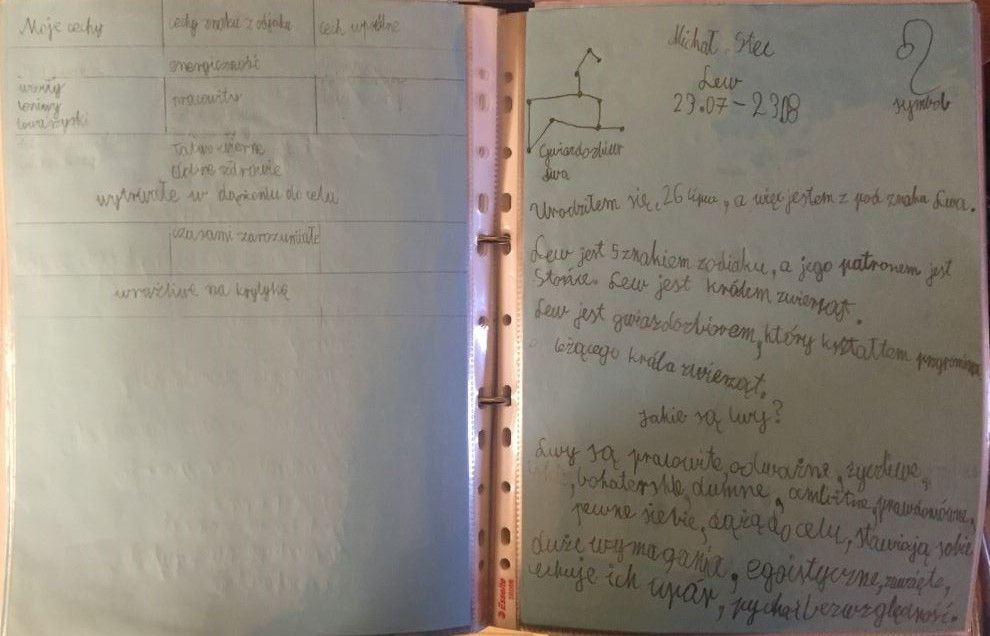 Moje cechy cechy znaku z odjaku cech wpólne
energiczność
uparty
leniwy pracowity
towarzyski
łatwo-wierne
dobre zdrowie
wytrwałe w dążeniu do celu
czasami zarozumiałe
wrażliwe na krytykę
Michał Stec
Lew
23.07 - 23 08
symbol
Gwiazdozbiur
lwa
Urodziłem się, 26 lipca, a więc jestem z pod znaka Lwa.
Lew jest 5 znakiem zodiaku, a jego patronem jest
Słońce. Lew jest królem zwierząt.
Lew jest gwiazdozbiorem, który kształtem przypomina
leżącego króla zwierząt.
Jakie są lwy?
Lwy są pracowite, odważne, życzliwe,
bohaterskie, dumne, ambitne, prawdomówne,
pewne siebie, dążą do celu, stawiają sobie
duże wymagania, egoistyczne, zawzięte,
cehuje ich upór, pycha i bezwzględność.
Esselte